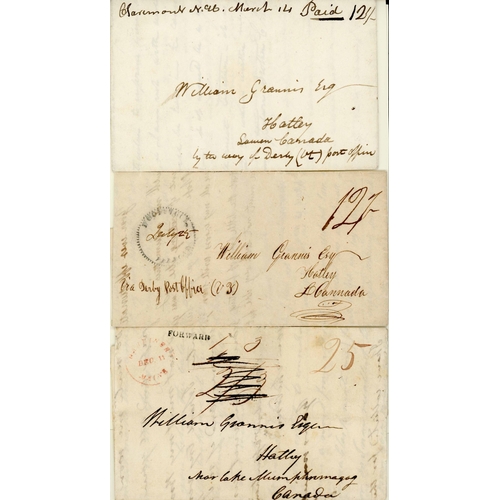 Claremont N.H. March 14 Paid 12½
William Grannis Esq
Hatley
Lower Canada
by the way of Derby (Vt) post office
July 25
12½
William Grannis Esq
Hatley
L Cannada
Via Derby Post Office
FORWARD
DEC 11
25
William Grannis Esqr
Hatley
Near lake Memphremagog
Canada